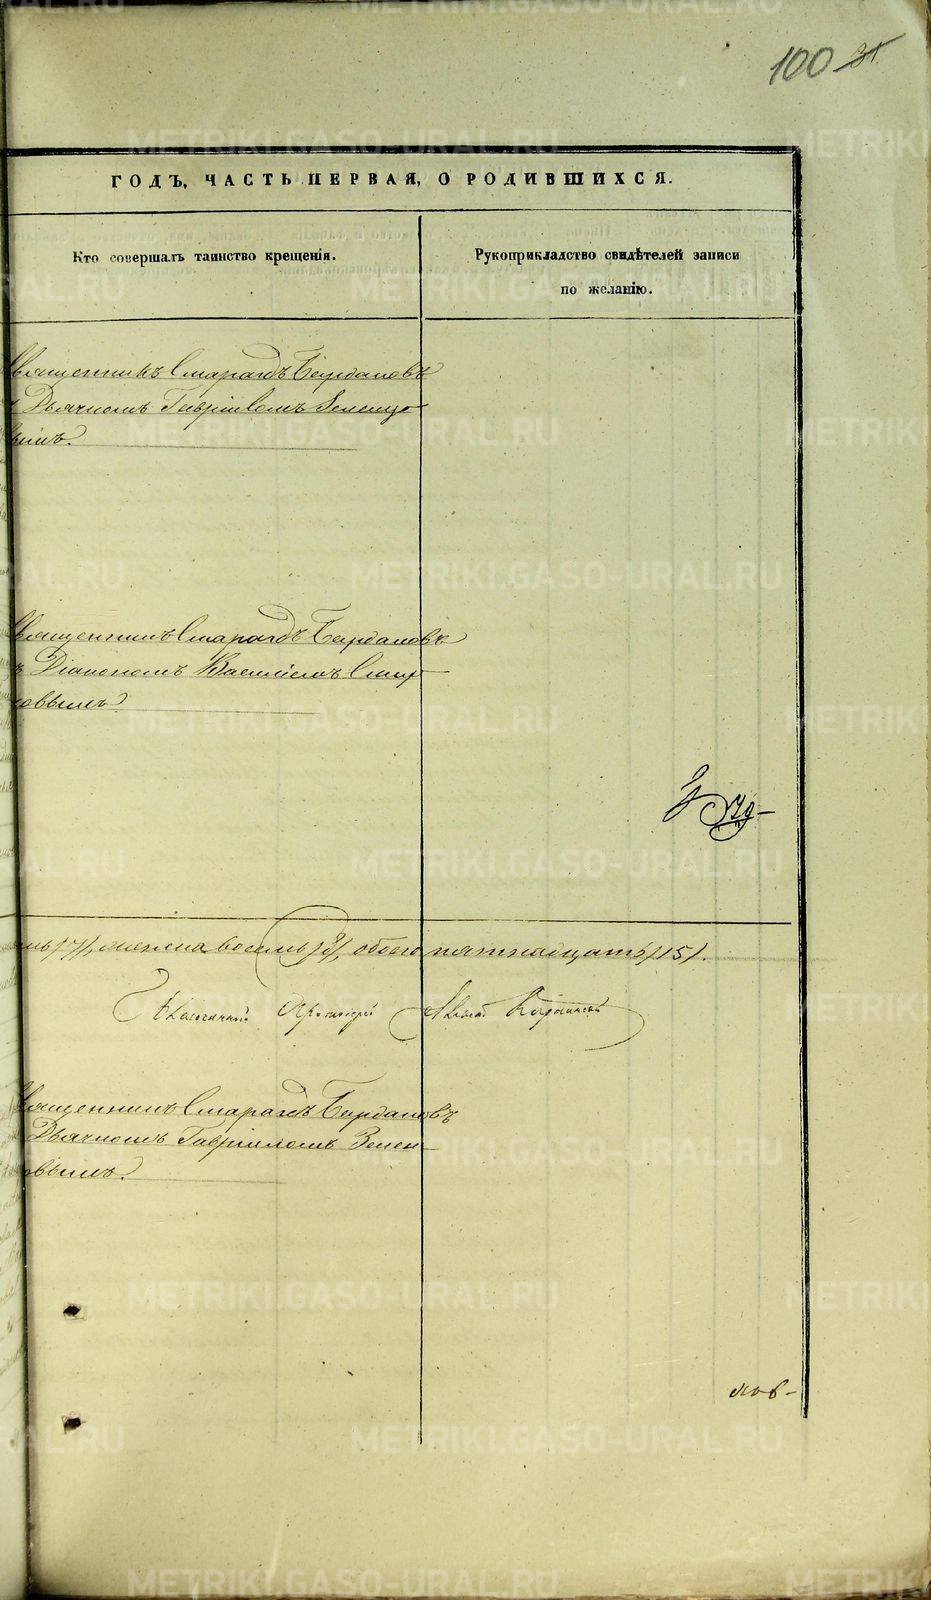 100
ГОДЪ, ЧАСТЬ ПЕРВАЯ, О РОДИВШИХСЯ.
Кто совершалъ таинство крещенія.
Рукоприкладство свидѣтелей записи
по желанію.
Священникъ Смарагдъ Бирдановъ
Дьячкомъ Гавріиломъ Зеленцо
вымъ.
Священникъ Смарагдъ Бирдановъ
съ Діакономъ Василіемъ Смир
новымъ
мь /7/, женска восемь /8/, обоего пятнадцать /15/.
Благочинный Протоіерей
Священникъ Смарагдъ Бирдановъ
Дьячкомъ Гавріиломъ Зелен
овымъ.
нов-
METRIKI.GASO-URAL.RU